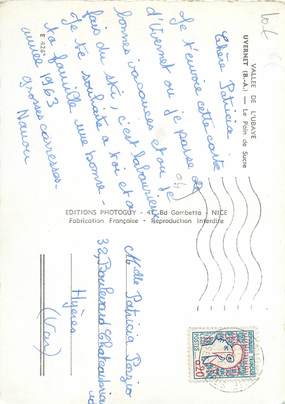 VALLÉE DE L'UBAYE
UVERNET (B.-A.) — Le Pain de Sucre
Chère Patricia
Je t'envoie cette carte
d'Uvernet ou je passe de
bonnes vacances et ou je
fais du ski, c'est
Je te souhaite a toi et a
ta famille une bonne
année 1963
grosses caresses.
E 426
EDITIONS PHOTOGUY - 41, Bd Gambetta - NICE
Fabrication Française - Reproduction Interdite
Melle Patricia
32, Boulevard Chateaubriand
Hyères
(Var)
POSTES
0,20
10 f